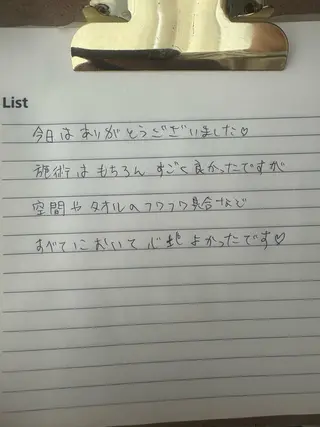 List
今日はありがとうございました♡
施術はもちろんすごく良かったですが
空間やタオルのフワフワ具合など
すべてにおいて心地よかったです♡